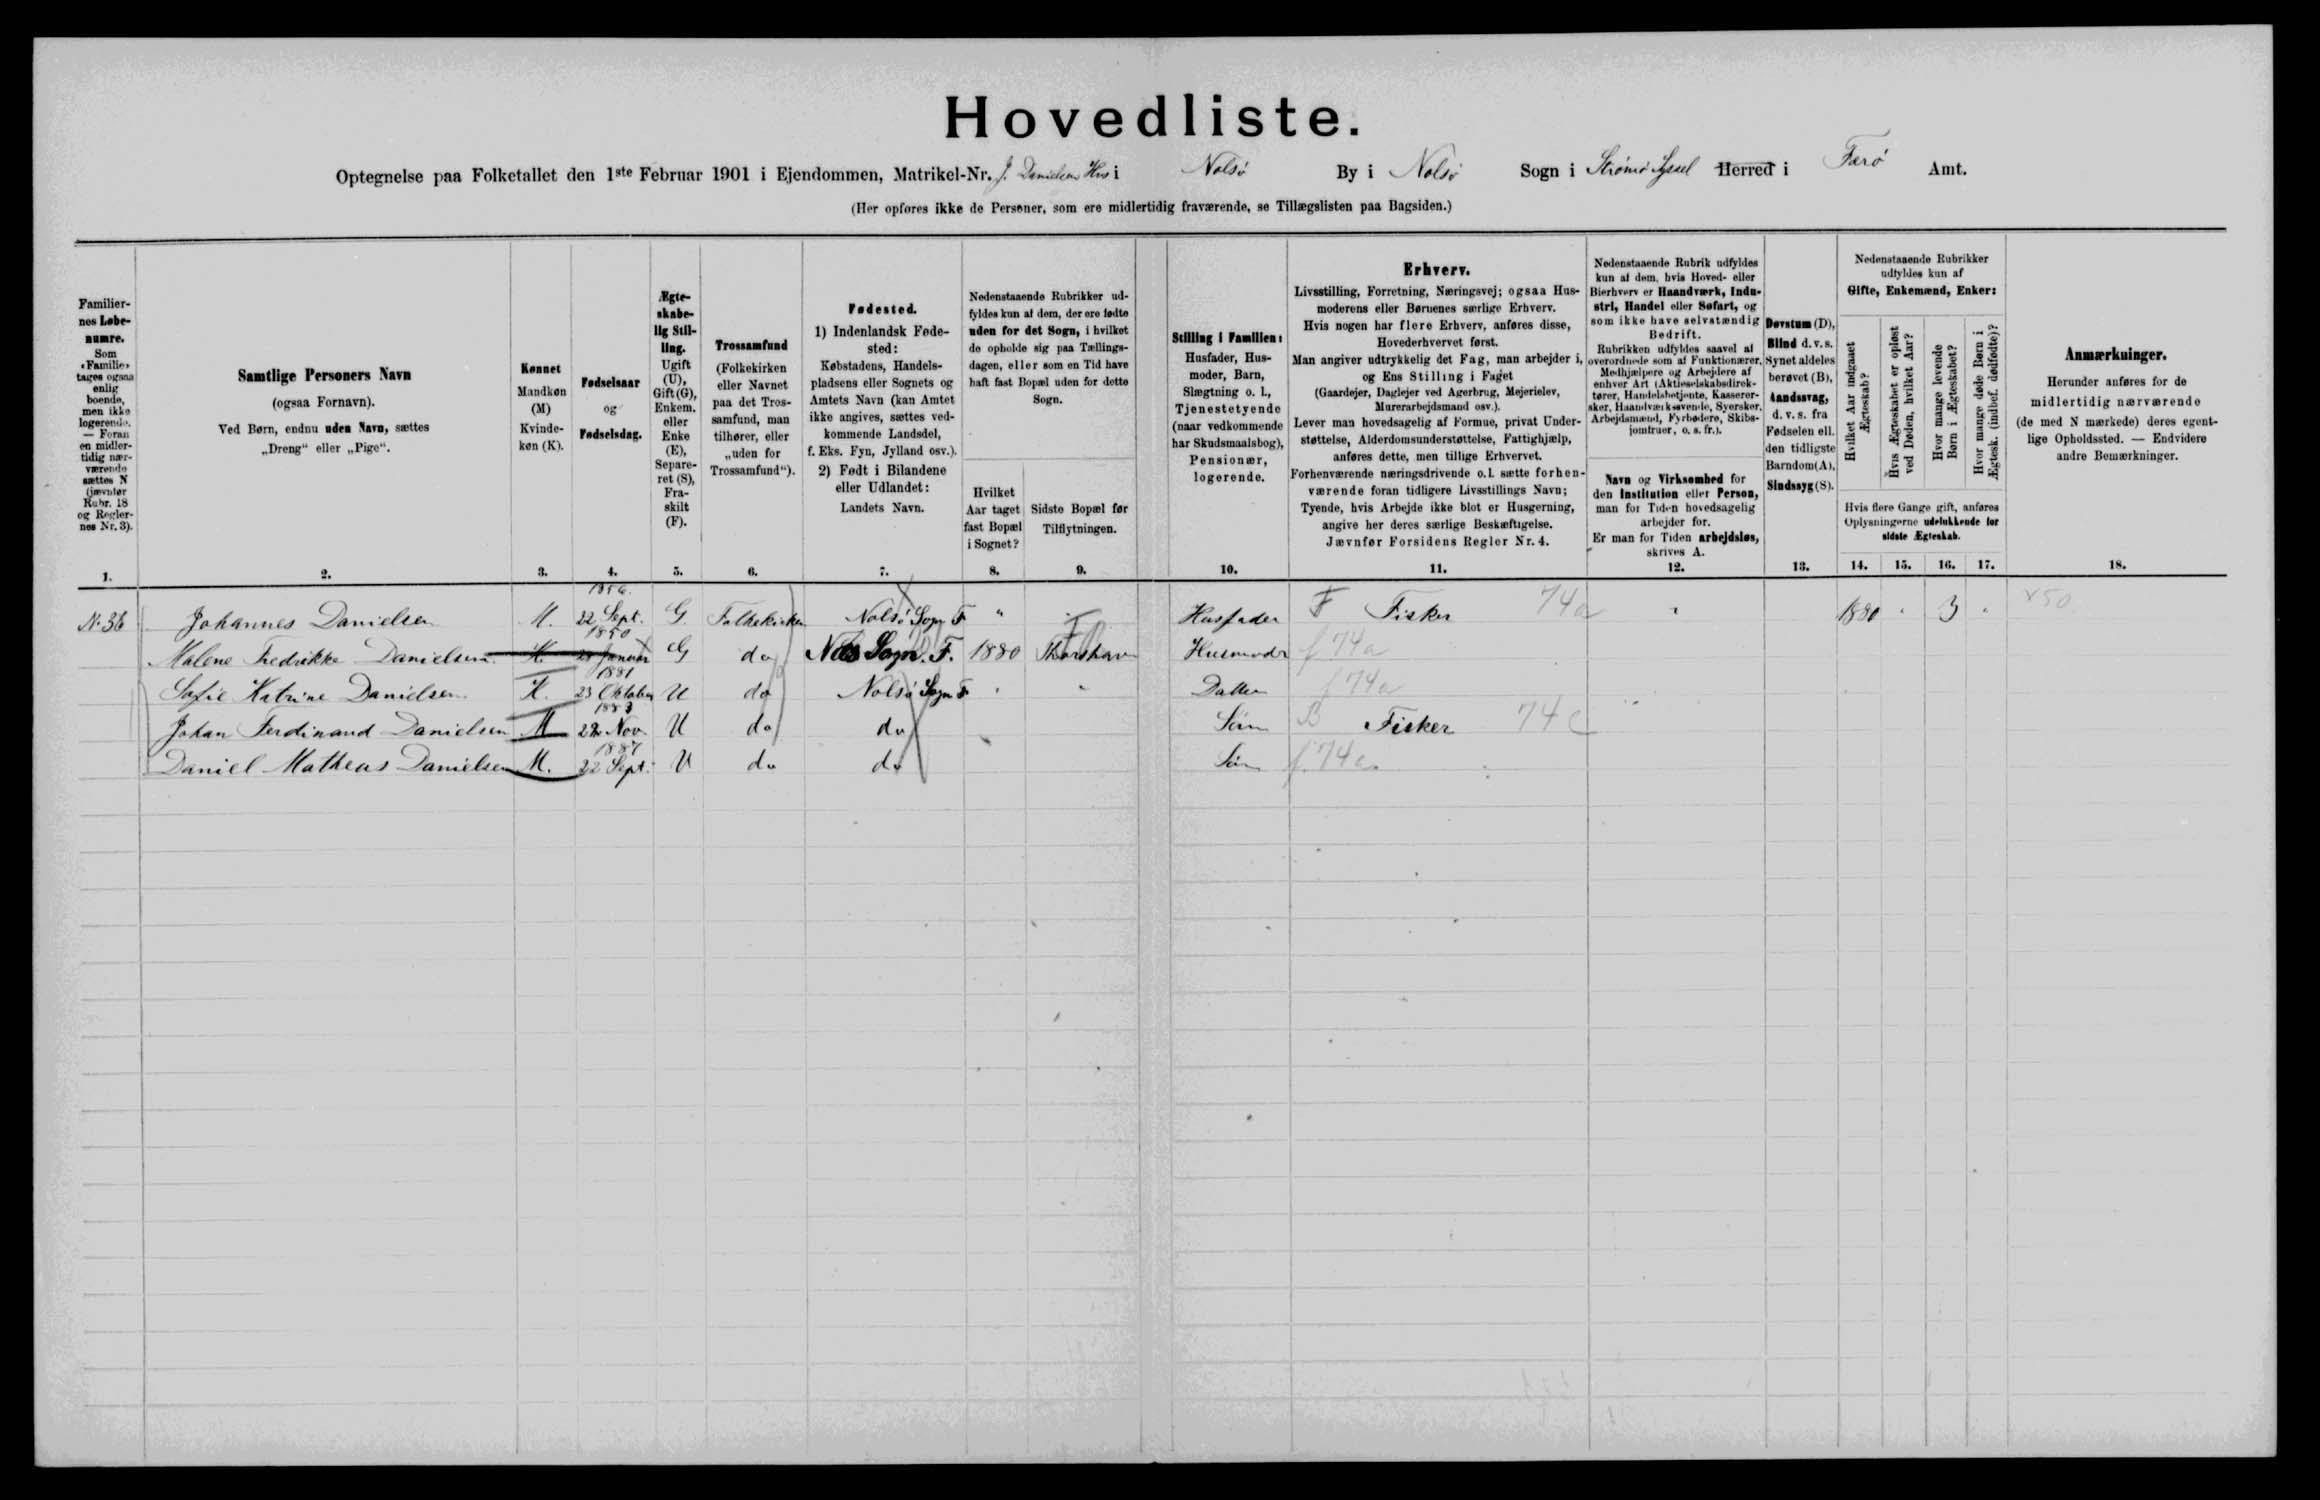 Hovedliste.
Optegnelse paa Folketallet den 1ste Februar 1901 i Ejendommen, Matrikel-Nr. J. Danielsens Hus i Nolsø By i Nolsø Sogn i Strømø Syssel Herred i Færø Amt.
(Her opføres ikke de Personer, som ere midlertidig fraværende, se Tillægslisten paa Bagsiden.)
Familiernes Løbenumre.
Som «Familie» tages ogsaa enlig boende, men ikke logerende. — Foran en midlertidig nærværende sættes N (jævnfør Rubr. 18 og Reglernes Nr. 3).
1.
Samtlige Personers Navn
(ogsaa Fornavn).
Ved Børn, endnu uden Navn, sættes
„Dreng“ eller „Pige“.
2.
Kønnet
Mandkøn (M)
Kvindekøn (K).
3.
Fødselsaar
og
Fødselsdag.
4.
Ægteskabelig Stilling.
Ugift (U), Gift (G), Enkem. eller Enke (E), Separeret (S), Fraskilt (F).
5.
Trossamfund
(Folkekirken eller Navnet paa det Trossamfund, man tilhører, eller „uden for Trossamfund“).
6.
Fødested.
1) Indenlandsk Fødested:
Købstadens, Handelspladsens eller Sognets og Amtets Navn (kan Amtet ikke angives, sættes vedkommende Landsdel, f. Eks. Fyn, Jylland osv.).
2) Født i Bilandene eller Udlandet:
Landets Navn.
7.
Nedenstaaende Rubrikker udfyldes kun af dem, der ere fødte uden for det Sogn, i hvilket de opholde sig paa Tællingsdagen, eller som en Tid have haft fast Bopæl uden for dette Sogn.
Hvilket Aar taget fast Bopæl i Sognet?
8.
Sidste Bopæl før Tilflytningen.
9.
Stilling i Familien:
Husfader, Husmoder, Barn, Slægtning o. l., Tjenestetyende (naar vedkommende har Skudsmaalsbog), Pensionær, logerende.
10.
Erhverv.
Livsstilling, Forretning, Næringsvej; ogsaa Husmoderens eller Børnenes særlige Erhverv.
Hvis nogen har flere Erhverv, anføres disse, Hovederhvervet først.
Man angiver udtrykkelig det Fag, man arbejder i, og Ens Stilling i Faget
(Gaardejer, Daglejer ved Agerbrug, Mejerielev, Murerarbejdsmand osv.).
Lever man hovedsagelig af Formue, privat Understøttelse, Alderdomsunderstøttelse, Fattighjælp, anføres dette, men tillige Erhvervet.
Forhenværende næringsdrivende o. l. sætte forhenværende foran tidligere Livsstillings Navn;
Tyende, hvis Arbejde ikke blot er Husgerning, angive her deres særlige Beskæftigelse.
Jævnfør Forsidens Regler Nr. 4.
11.
Nedenstaaende Rubrik udfyldes kun af dem, hvis Hoved- eller Bierhverv er Haandværk, Industri, Handel eller Søfart, og som ikke have selvstændig Bedrift.
Rubrikken udfyldes saavel af overordnede som af Funktionærer, Medhjælpere og Arbejdere af enhver Art (Aktieselskabsdirektører, Handelsbetjente, Kasserersker, Haandværkssvende, Syersker, Arbejdsmænd, Fyrbødere, Skibsjomfruer, o. s. fr.).
Navn og Virksomhed for den Institution eller Person, man for Tiden hovedsagelig arbejder for.
Er man for Tiden arbejdsløs, skrives A.
12.
Døvstum (D),
Blind d. v. s. Synet aldeles berøvet (B),
Aandssvag, d. v. s. fra Fødselen ell. den tidligste Barndom (A),
Sindssyg (S).
13.
Nedenstaaende Rubrikker udfyldes kun af
Gifte, Enkemænd, Enker:
Hvilket Aar indgaaet Ægteskab?
Hvis Ægteskabet er opløst ved Døden, hvilket Aar?
Hvor mange levende Børn i Ægteskabet?
Hvor mange døde Børn i Ægtesk. (indbef. dødfødte)?
Hvis flere Gange gift, anføres Oplysningerne udelukkende for sidste Ægteskab.
14. 15. 16. 17.
Anmærkninger.
Herunder anføres for de midlertidig nærværende (de med N mærkede) deres egentlige Opholdssted. — Endvidere andre Bemærkninger.
18.
No 36 Johannes Danielsen M. 1856. 22 Sept. G. Folkekirken Nolsø Sogn F " Husfader F Fisker 74a " 1880 " 3 " x50
Malene Fredrikke Danielsen K. 1850 Januar G do Sogn. F. 1880 Thorshavn Husmoder f 74a
Sofie Katrine Danielsen K. 1881 23 Oktober U do Nolsø Sogn F " " Datter f 74a
Johan Ferdinand Danielsen M 1883 22 Nov. U do do Søn B Fisker 74c
Daniel Matheus Danielsen M. 1887 22 Sept. U do do Søn f. 74a